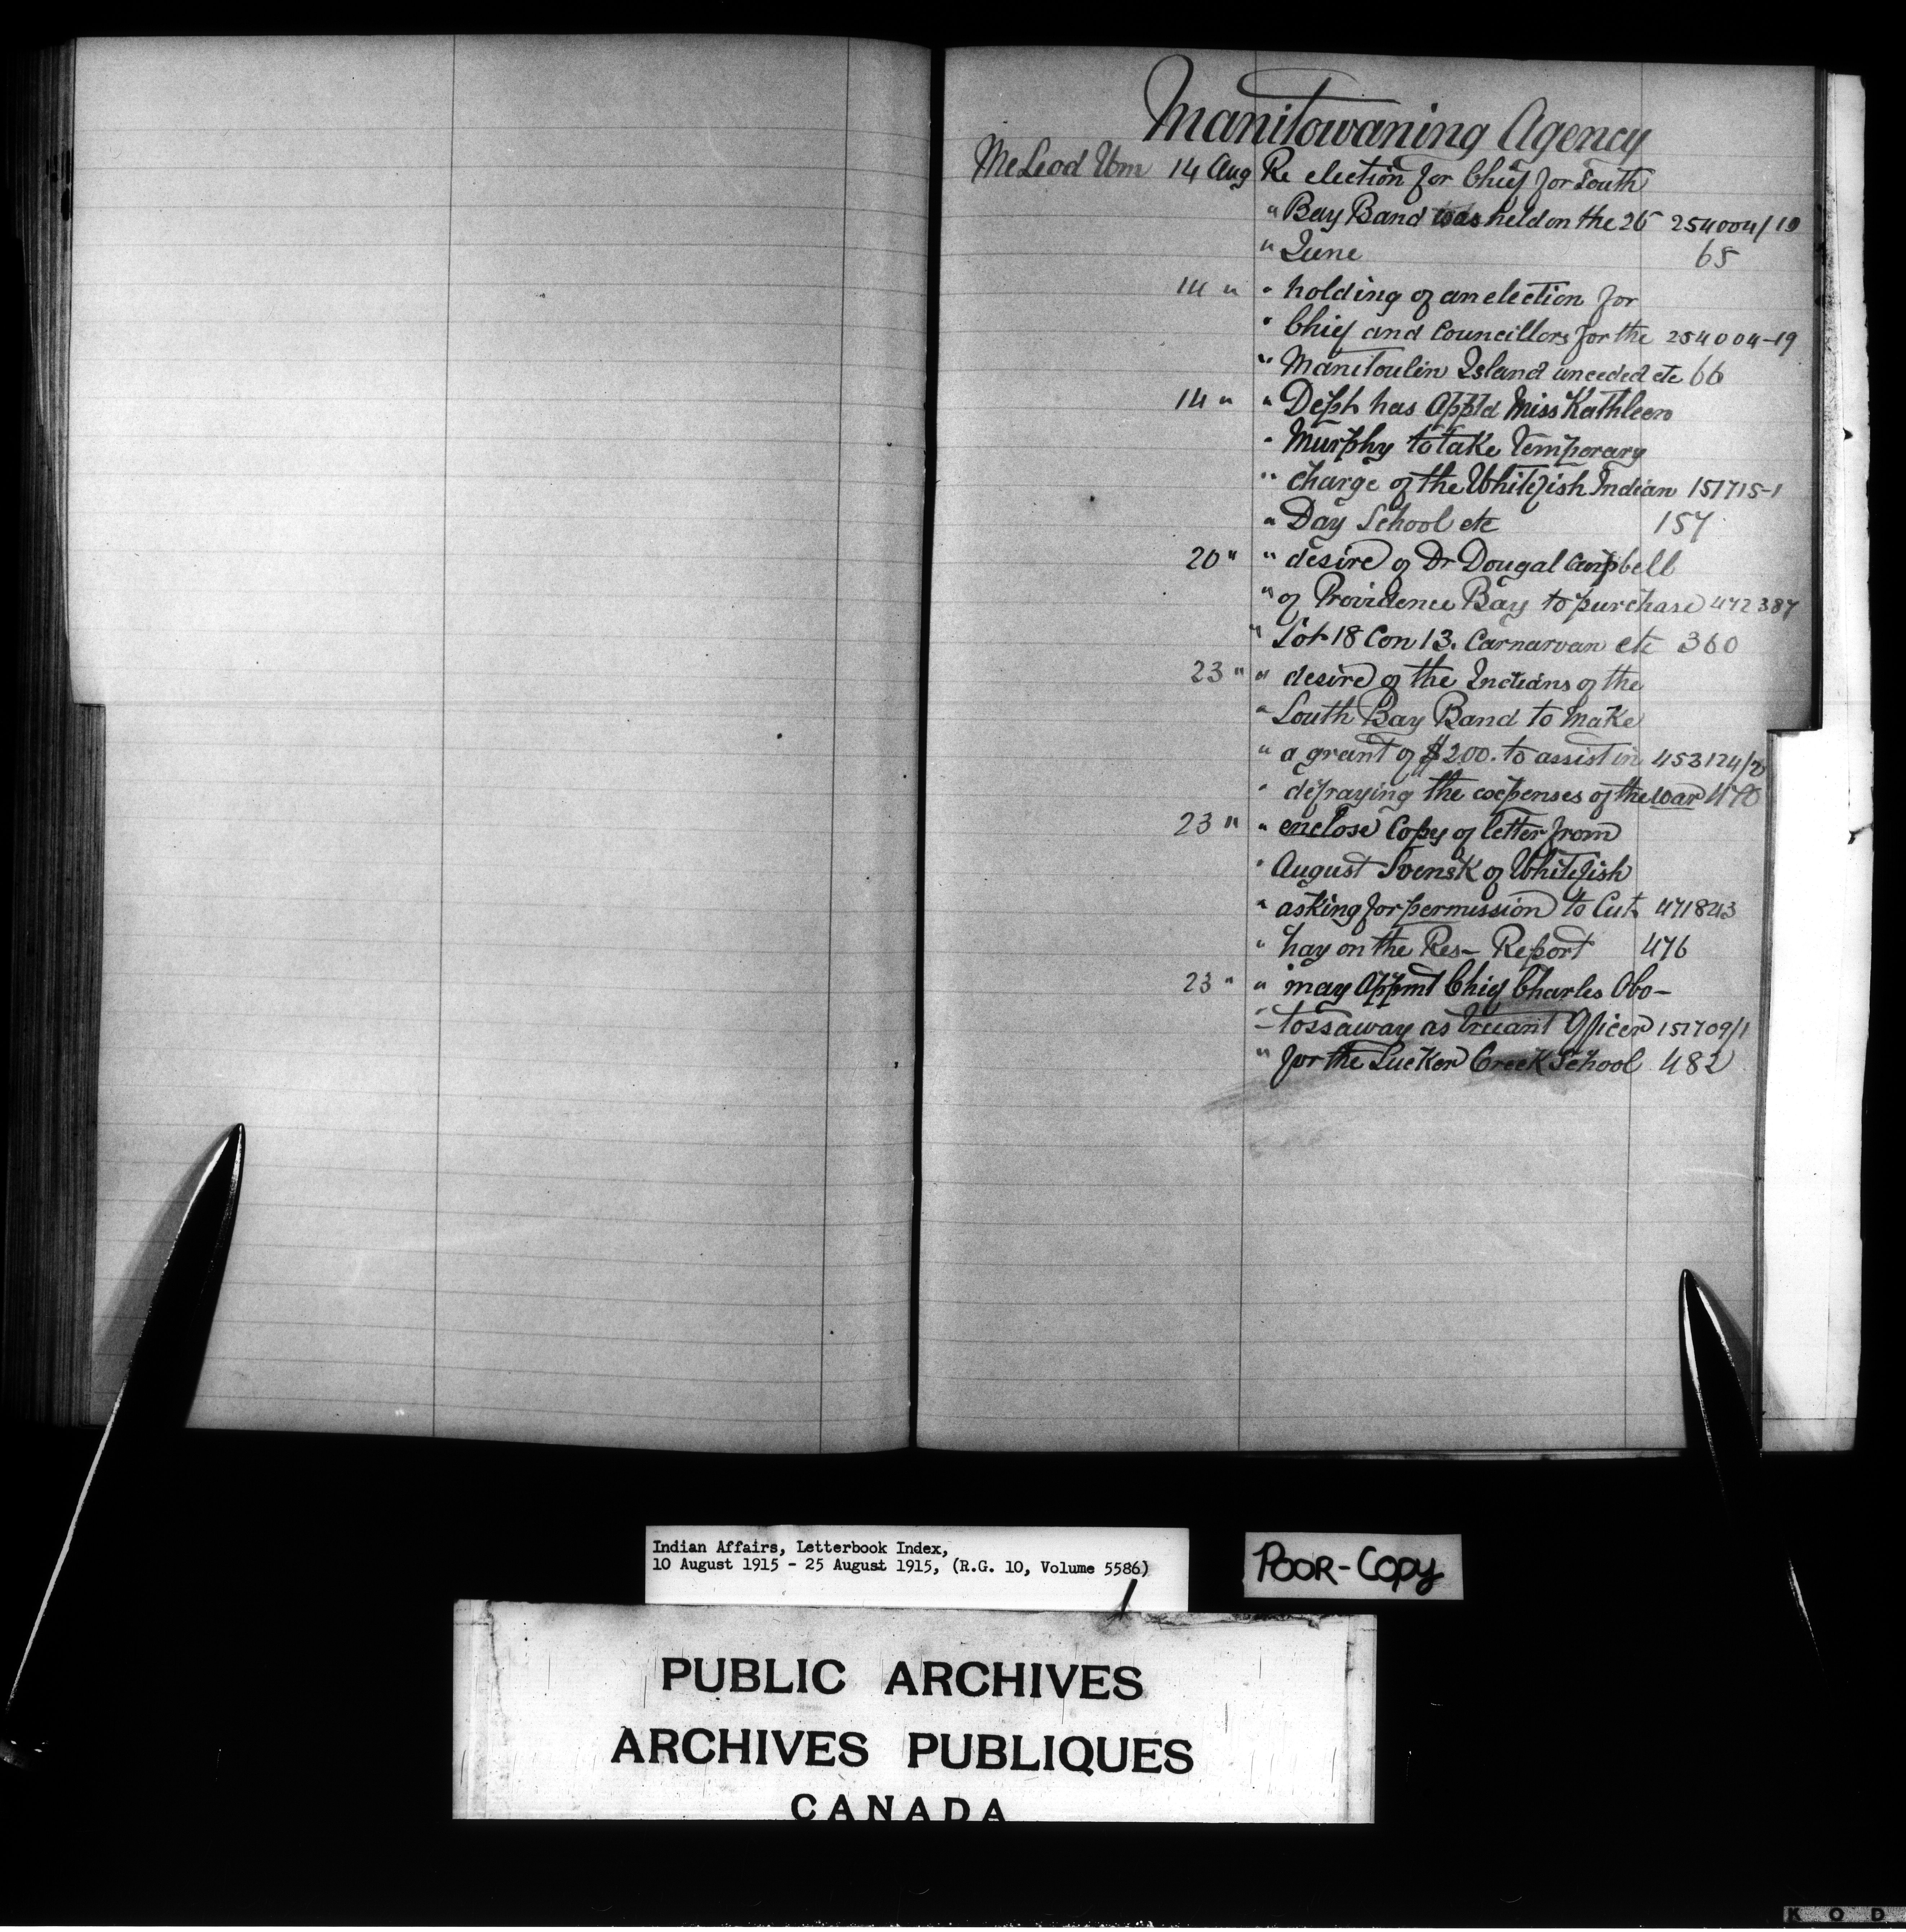 Manitowaning Agency
McLeod Wm 14 Aug Re election for Chief for South
" Bay Band was held on the 26 254004/19
" June 65
14 " " holding of an election for
" Chief and Councillors for the 254004-19
" Manitoulin Island unceded etc 66
14 " " Dept has Appt'd Miss Kathleen
" Murphy to take temporary
" charge of the Whitefish Indian 151715-1
" Day School etc 157
20 " " desire of Dr Dougal Campbell
" of Providence Bay to purchase 472387
" Lot 18 Con 13. Carnarvan etc 360
23 " " desire of the Indians of the
" South Bay Band to make
" a grant of $200. to assist in 453124/2
" defraying the expenses of the war 470
23 " " enclose Copy of letter from
" August Svensk of Whitefish
" asking for permission to Cut 471843
" hay on the Res- Report 476
23 " " may Appmt Chief Charles Obo-
- tossaway as truant Officer 151709/1
" for the Sucker Creek School 482
Indian Affairs, Letterbook Index,
10 August 1915 - 25 August 1915, (R.G. 10, Volume 5586)
POOR-COPY
PUBLIC ARCHIVES
ARCHIVES PUBLIQUES
CANADA
K O D